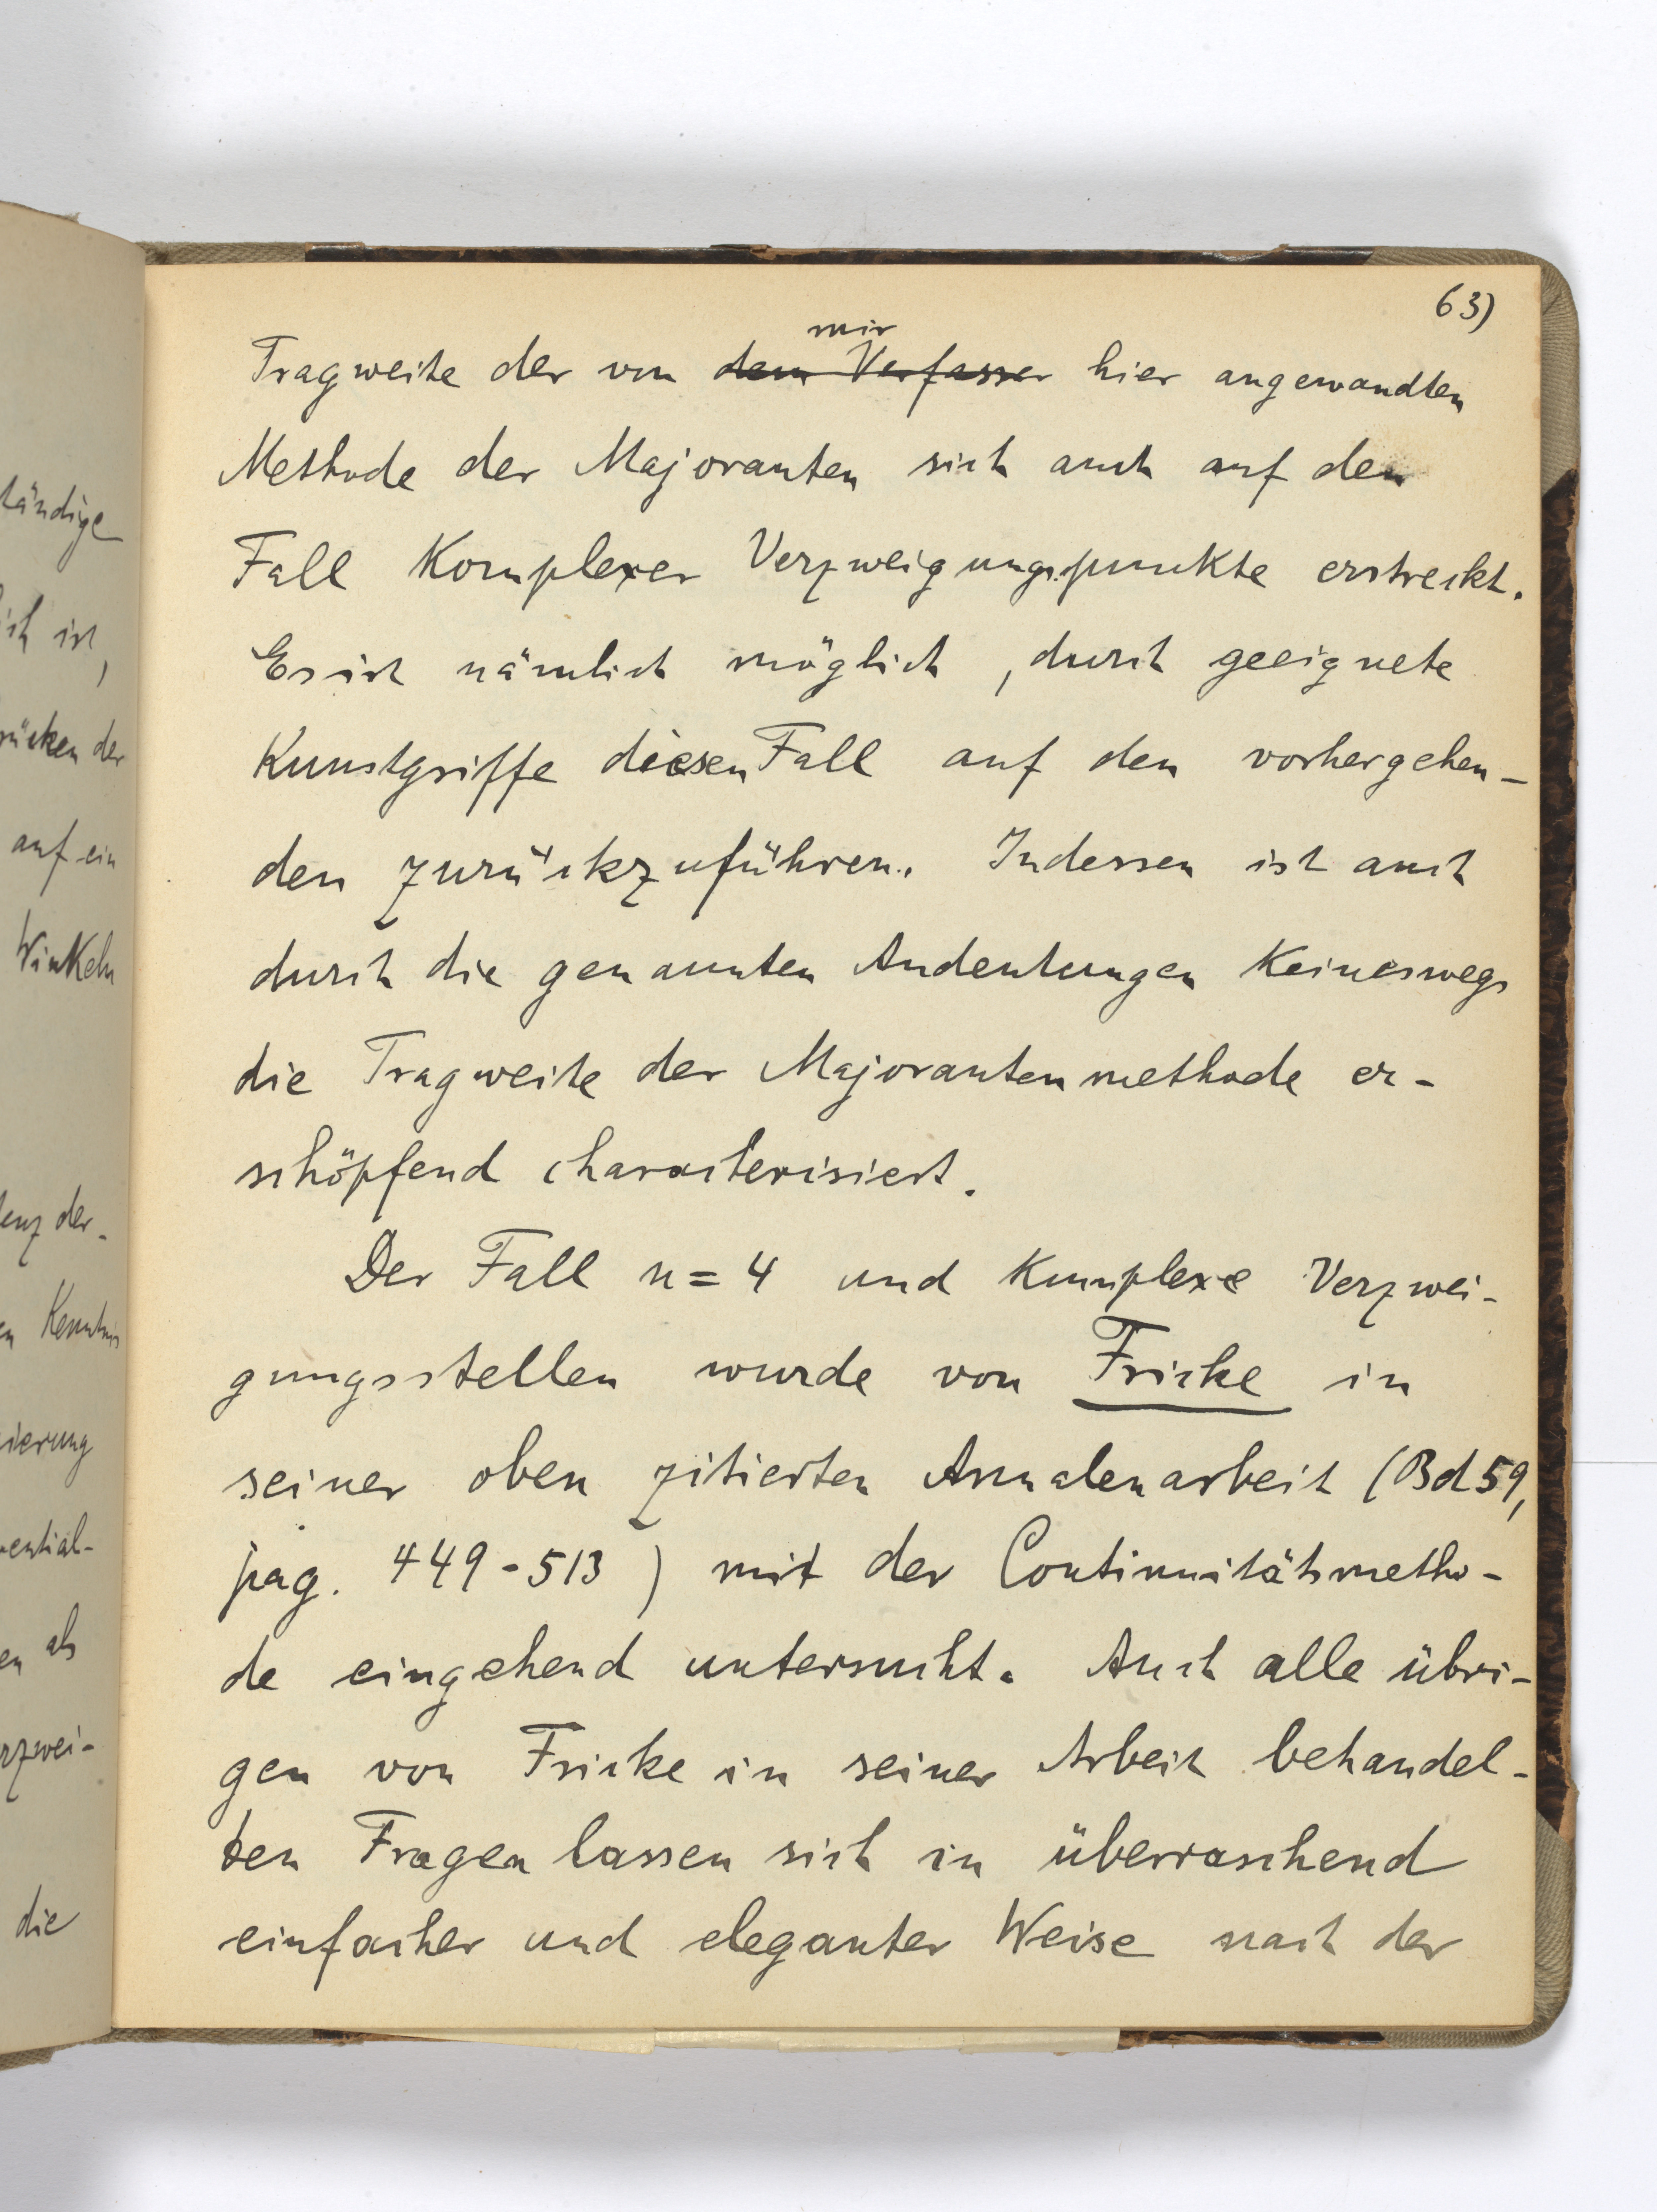 63)
mir
Tragweite der von dem Verfasser hier angewandten
Methode der Majoranten sich auch auf den
Fall Komplexer Verzweigungspunkte erstreckt.
Es ist nämlich möglich, durch geeignete
Kunstgriffe diesen Fall auf den vorhergehen-
den zurückzuführen. Indessen ist auch
durch die genannten Andeutungen Keineswegs
die Tragweite der Majorantenmethode er-
schöpfend characterisiert.
Der Fall n=4 und Komplexe Verzwei-
gungsstellen wurde von Fricke in
seiner oben zitierten Annalenarbeit (Bd 59,
pag. 449-513) mit der Continuitätsmetho-
de eingehend untersucht. Auch alle übri-
gen von Fricke in seiner Arbeit behandel-
ten Fragen lassen sich in überraschend
einfacher und eleganter Weise nach der
tändige
ich ist,
rücken der
auf ein
Winkeln
enz der-
en Kenntnis
ierung
ential-
en als
rzwei-
die